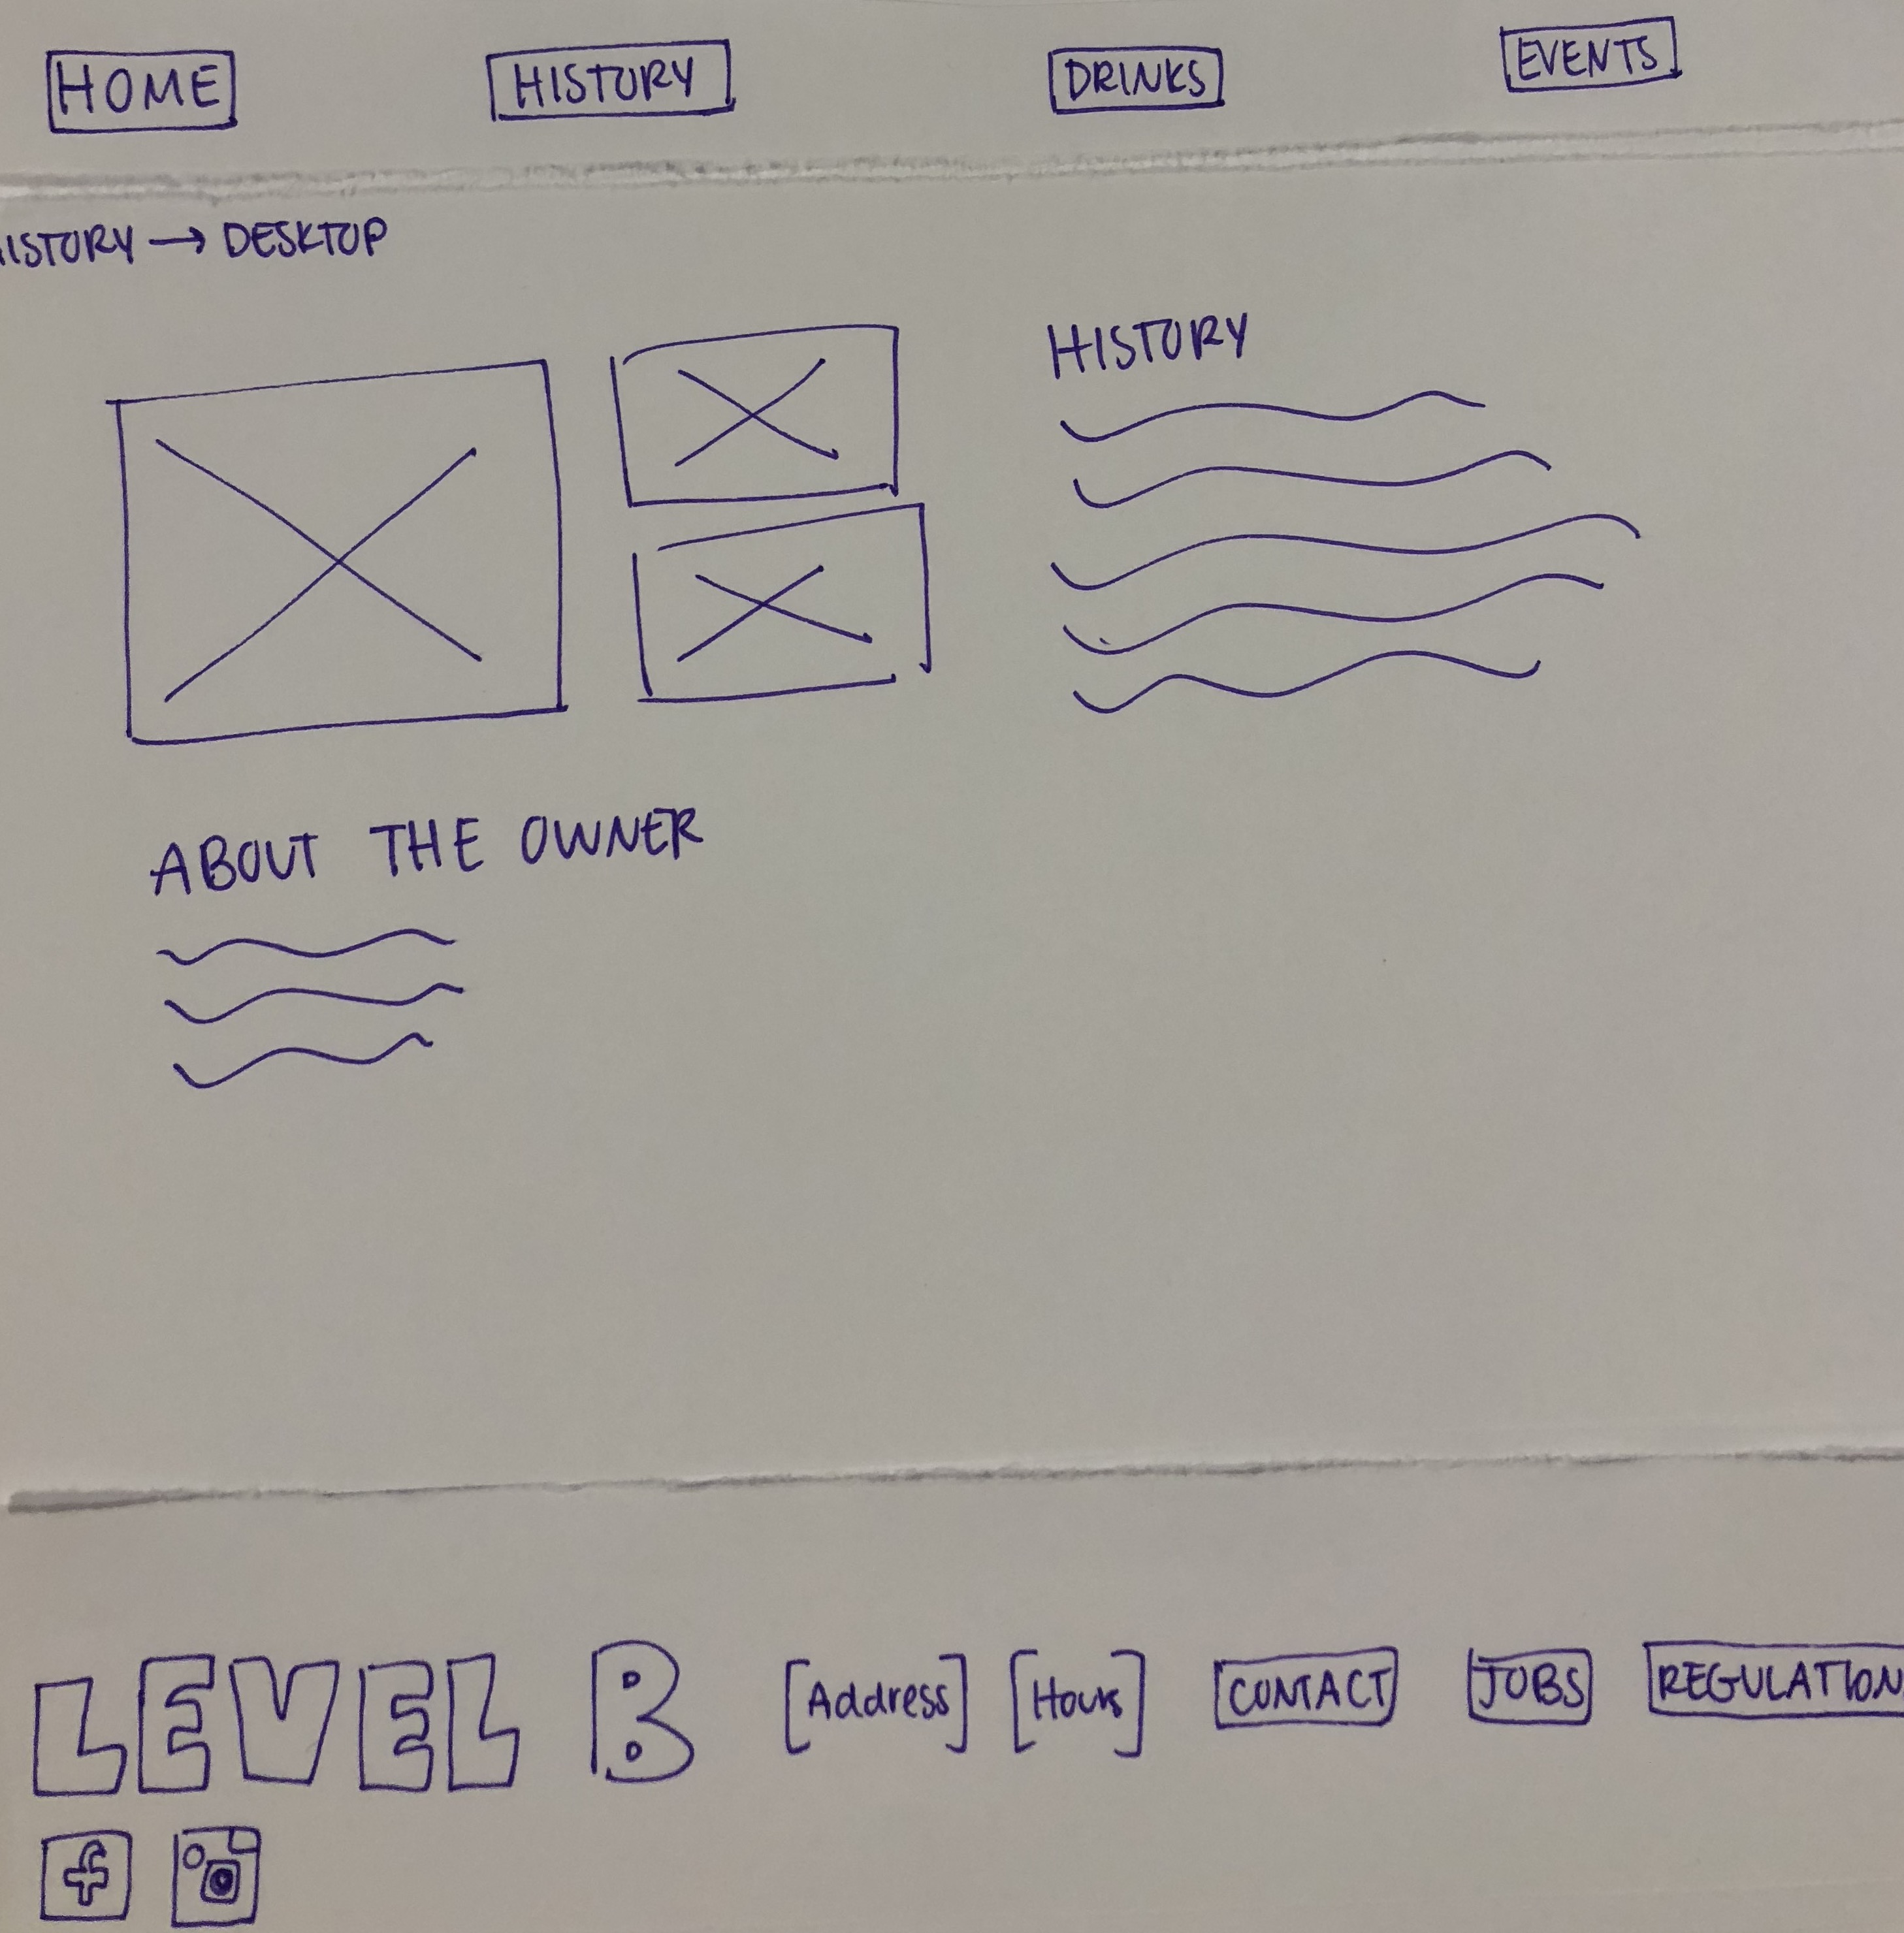 HOME HISTORY DRINKS EVENTS
ISTORY → DESKTOP
HISTORY
ABOUT THE OWNER
LEVEL B [Address] [Hours] CONTACT JOBS REGULATION
f